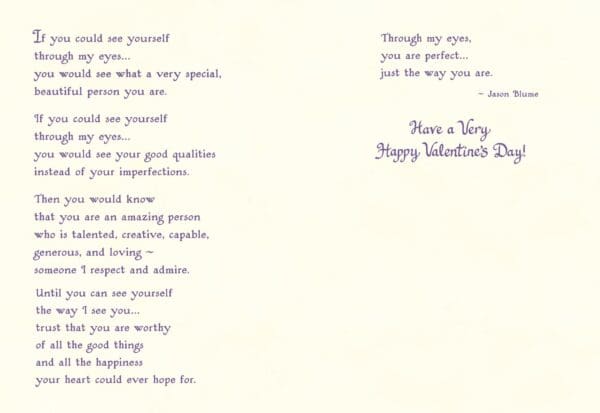 If you could see yourself
through my eyes...
you would see what a very special,
beautiful person you are.
If you could see yourself
through my eyes...
you would see your good qualities
instead of your imperfections.
Then you would know
that you are an amazing person
who is talented, creative, capable,
generous, and loving ~
someone I respect and admire.
Until you can see yourself
the way I see you...
trust that you are worthy
of all the good things
and all the happiness
your heart could ever hope for.
Through my eyes,
you are perfect...
just the way you are.
~ Jason Blume
Have a Very
Happy Valentine's Day!